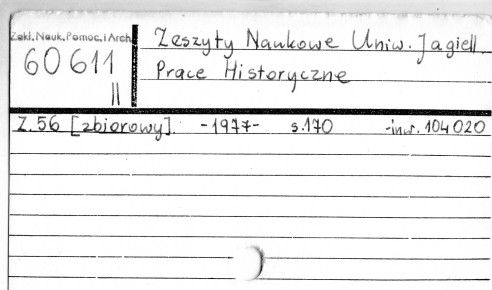 Zakł. Nauk. Pomoc. i Arch.
60611
II
Zeszyty Naukowe Uniw. Jagiell
Prace Historyczne
Z. 56 [zbiorowy]. -1977- s. 170 -inw. 104020